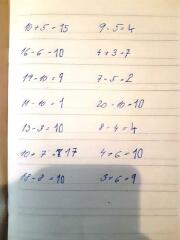 10 + 5 = 15 9 - 5 = 4
16 - 6 = 10 4 + 3 = 7
19 - 10 = 9 7 - 5 = 2
11 - 10 = 1 20 - 10 = 10
13 - 3 = 10 8 - 4 = 4
10 + 7 = 17 4 + 6 = 10
18 - 8 = 10 3 + 6 = 9